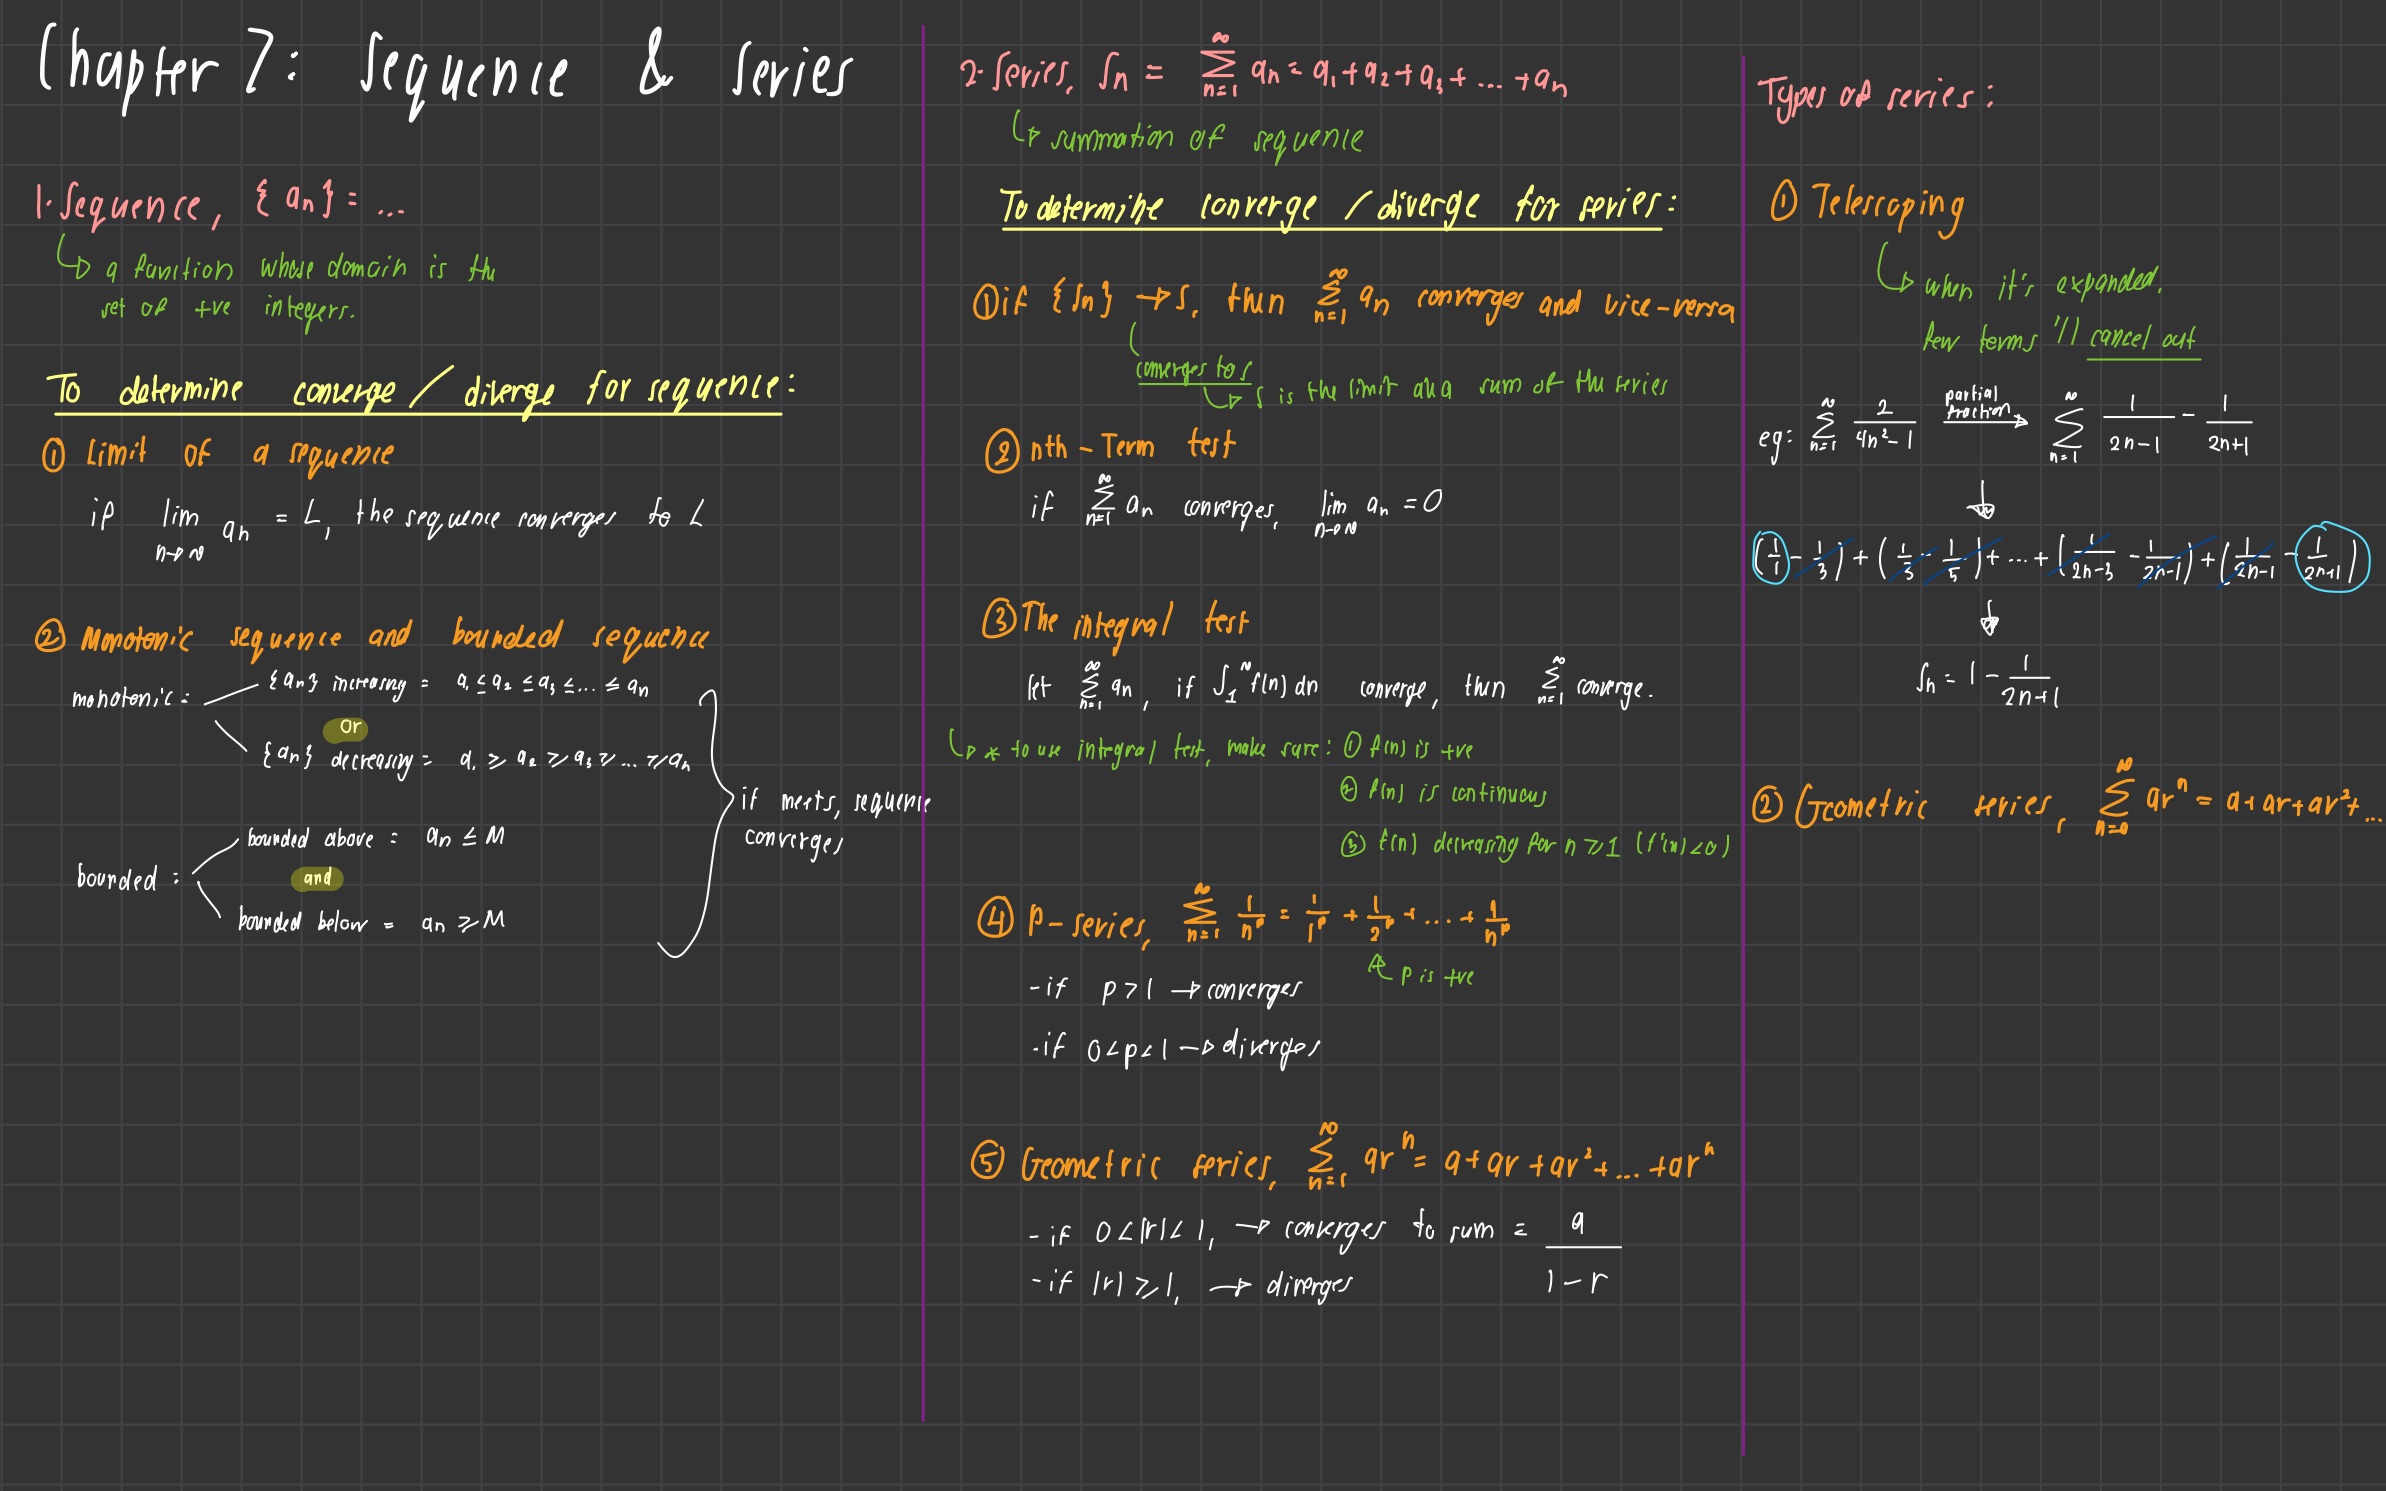 Chapter 7: Sequence & Series
1. Sequence, {an} = ...
a function whose domain is the
set of +ve integers.
To determine converge / diverge for sequence:
① Limit of a sequence
if lim n→∞ an = L, the sequence converges to L
② Monotonic sequence and bounded sequence
monotonic: {an} increasing = a₁ ≤ a₂ ≤ a₃ ≤ ... ≤ an
or
{an} decreasing = a₁ ≥ a₂ ≥ a₃ ≥ ... ≥ an
if meets, sequence
converges
bounded : bounded above = an ≤ M
and
bounded below = an ≥ M
2. Series, Sn = ∞ Σ n=1 an = a₁ + a₂ + a₃ + ... + an
summation of sequence
To determine converge / diverge for series:
① if {Sn} → S, then ∞ Σ n=1 an converges and vice-versa
converges to S
S is the limit aka sum of the series
② nth - Term test
if ∞ Σ n=1 an converges, lim n→∞ an = 0
③ The integral test
let ∞ Σ n=1 an, if ∫₁^∞ f(n) dn converge, then ∞ Σ n=1 converge.
* to use integral test, make sure: ① f(n) is +ve
② f(n) is continuous
③ f(n) decreasing for n ≥ 1 (f'(n) < 0)
④ P-series, ∞ Σ n=1 1/n^p = 1/1^p + 1/2^p + ... + 1/n^p
p is +ve
- if p > 1 → converges
- if 0 < p < 1 → diverges
⑤ Geometric series, ∞ Σ n=1 ar^n = a + ar + ar² + ... + ar^n
- if 0 < |r| < 1, → converges to sum = a/(1 - r)
- if |r| ≥ 1, → diverges
Types of series:
① Telescoping
when it's expanded,
few terms 'll cancel out
eg: ∞ Σ n=1 2/(4n² - 1) partial fraction → ∞ Σ n=1 1/(2n-1) - 1/(2n+1)
(1/1 - 1/3) + (1/3 - 1/5) + ... + (1/(2n-3) - 1/(2n-1)) + (1/(2n-1) - 1/(2n+1))
Sn = 1 - 1/(2n+1)
② Geometric series, ∞ Σ n=0 ar^n = a + ar + ar² + ...